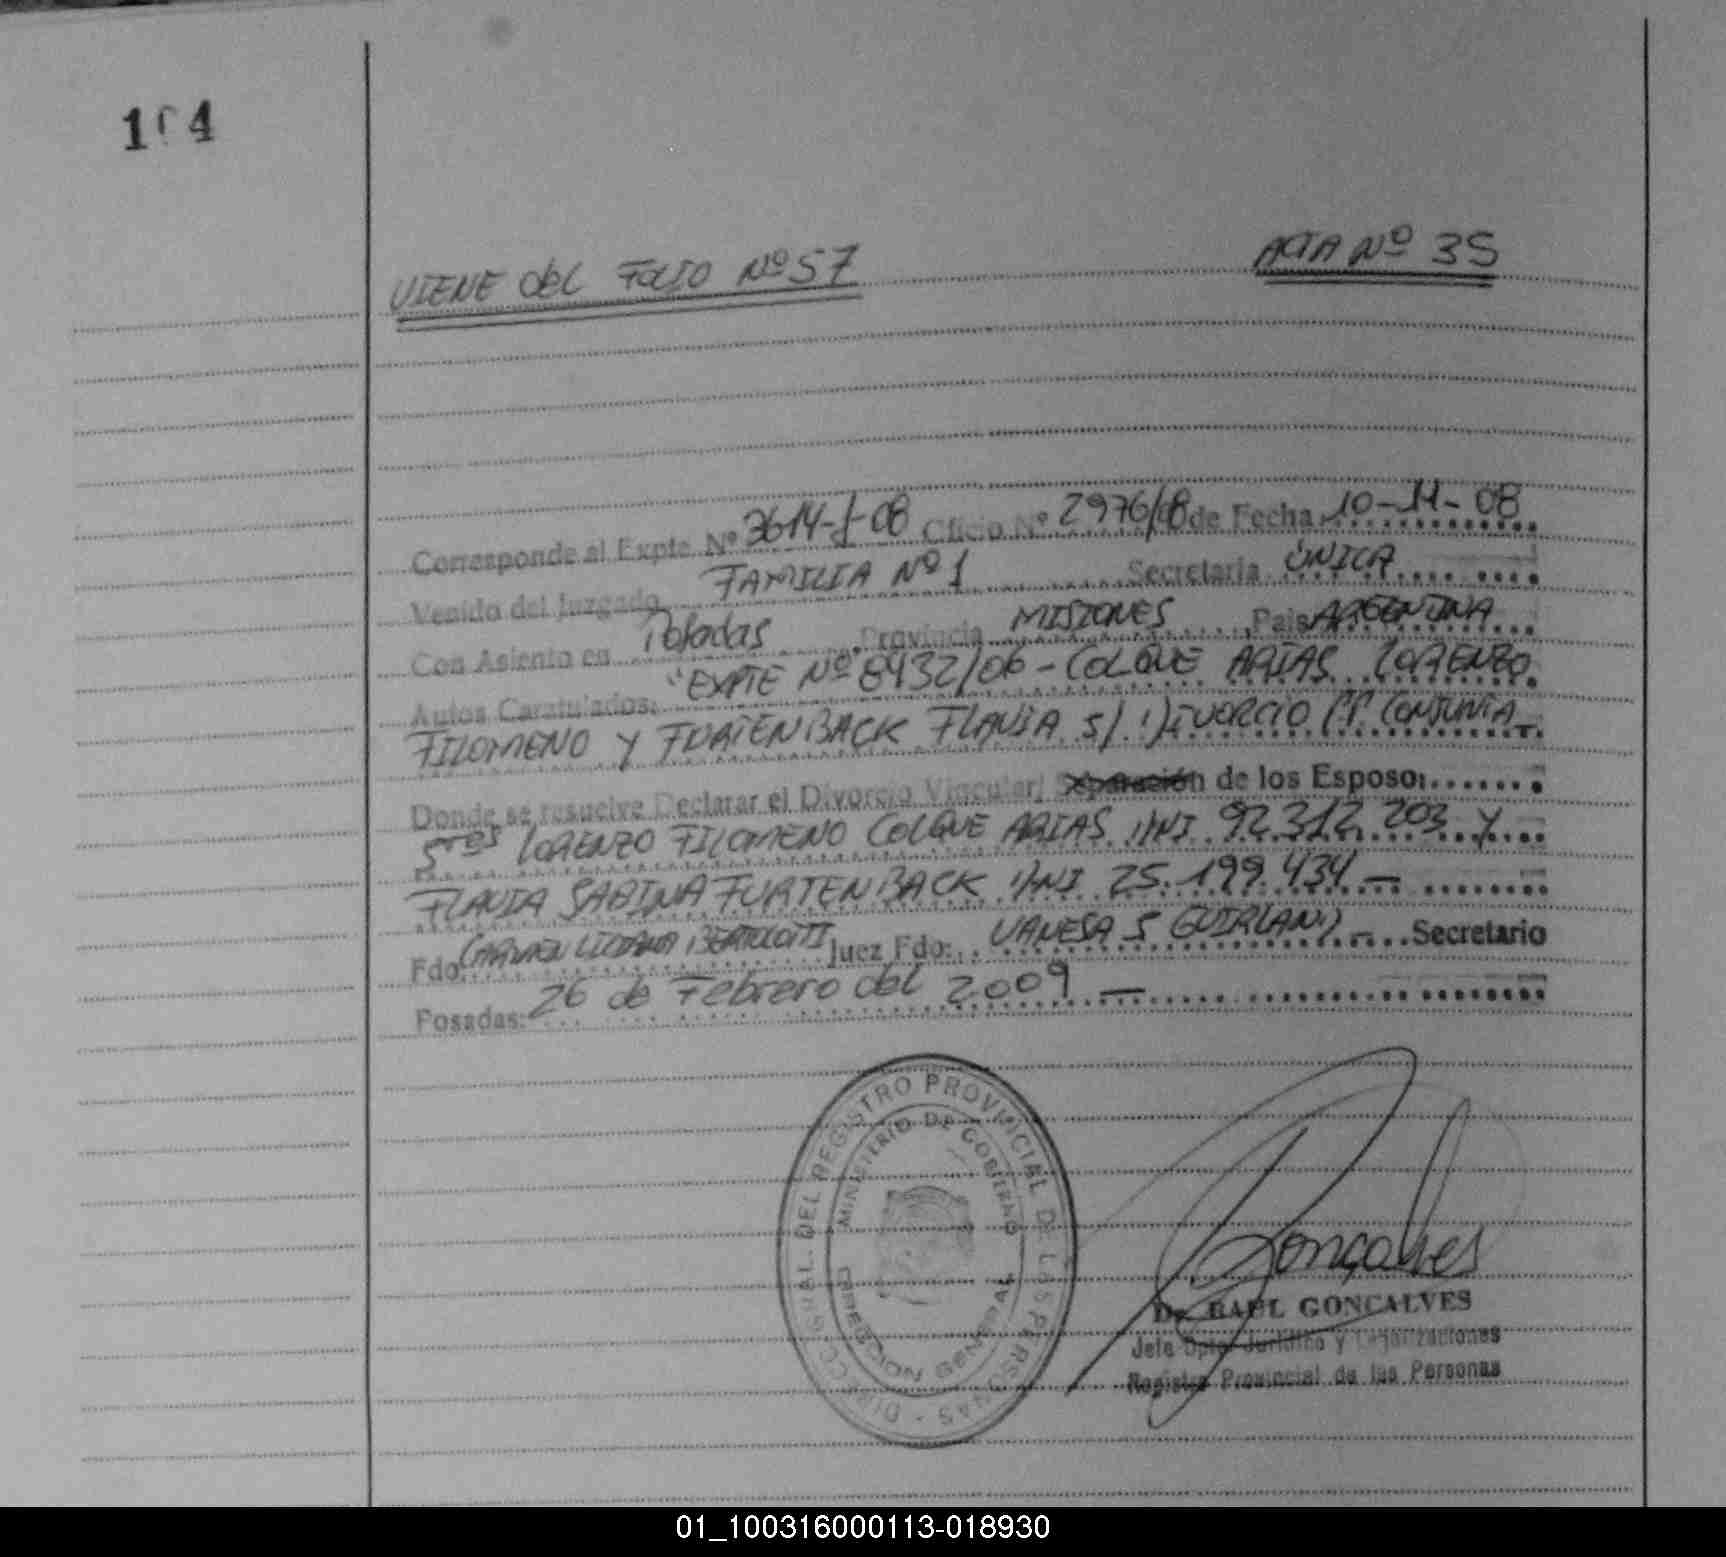 104
VIENE del FOLIO Nº 57 ACTA Nº 35
Corresponde al Expte Nº 3614-J-08 Oficio Nº 2976/08 de Fecha 10-11-08
Venido del Juzgado FAMILIA Nº 1 Secretaria ÚNICA
Con Asiento en Posadas, Provincia MISIONES, Pais ARGENTINA
Autos Caratulados: "EXPTE Nº 8432/06 - COLQUE ARIAS LORENZO
FILOMENO Y FURTENBACK FLAVIA S/ DIVORCIO P.P. CONJUNTA
Donde se resuelve Declarar el Divorcio Vincular/ Separación de los Esposo:
Sres LORENZO FILOMENO COLQUE ARIAS DNI 92.312.203 Y
FLAVIA SABINA FURTENBACK DNI 25.199.434 -
Fdo: CARMEN BERTOLOTTI Juez Fdo: VANESA S GUIRLAND - Secretario
Posadas: 26 de Febrero del 2009 -
DIRECC. GRAL. DEL REGISTRO PROVINCIAL DE LAS PERSONAS
MINISTERIO DE GOBIERNO
DIRECCION GENERAL
Gonçalves
Dr. RAUL GONCALVES
Jefe Dpto. Jurídico y Legalizaciones
Registro Provincial de las Personas
01_100316000113-018930